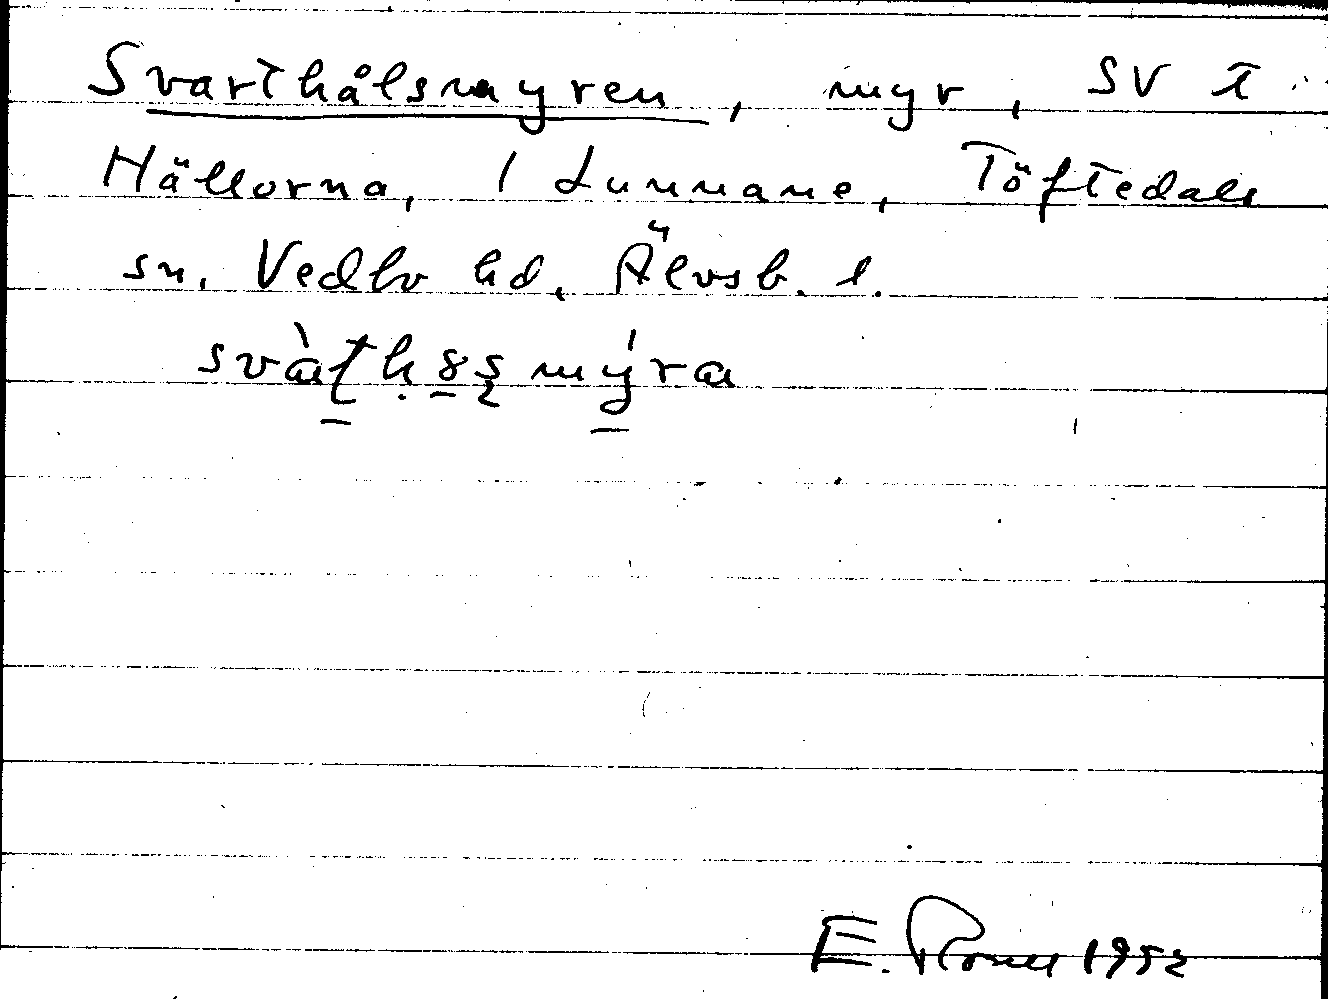 Svarthålsmyren, myr, SV i
Hällorna, 1 Lunnane, Töftedals
sn, Vedbo hd, Älvsb. l.
E. 1952